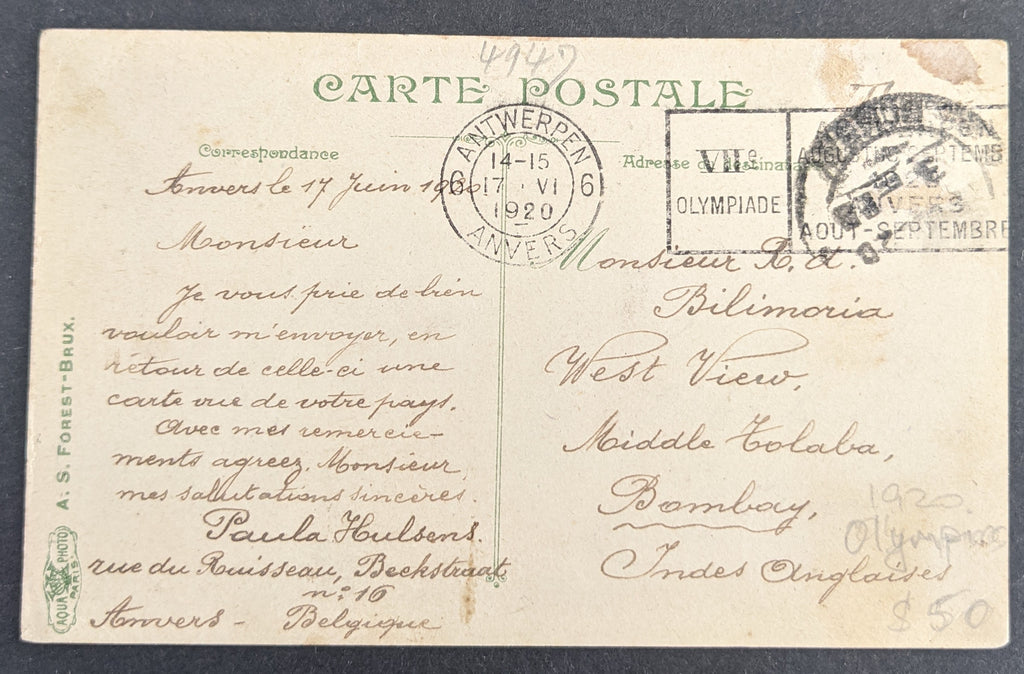 4947
CARTE POSTALE
Correspondance
Adresse du destinataire
ANTWERPEN
14-15
6 17 · VI 6
1920
ANVERS
VIIe
OLYMPIADE
AUGUSTUS-SEPTEMB
1920
ANVERS
AOUT-SEPTEMBRE
Anvers le 17 Juin 1920
Monsieur
Je vous prie de bien
vouloir m'envoyer, en
retour de celle-ci une
carte vue de votre pays.
Avec mes remercie-
ments agreez. Monsieur
mes salutations sincères.
Paula Hulsens.
rue du Ruisseau, Beekstraat
n: 16
Anvers - Belgique
Monsieur R. A.
Bilimoria
West View,
Middle Colaba,
Bombay,
Indes Anglaises
1920
$50
A. S. FOREST-BRUX.
AQUA PHOTO
PARIS